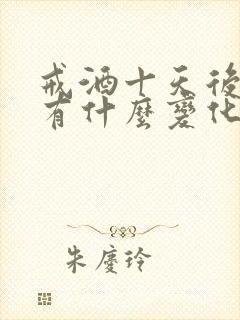 戒酒十天後
有什麼變化
朱慶玲